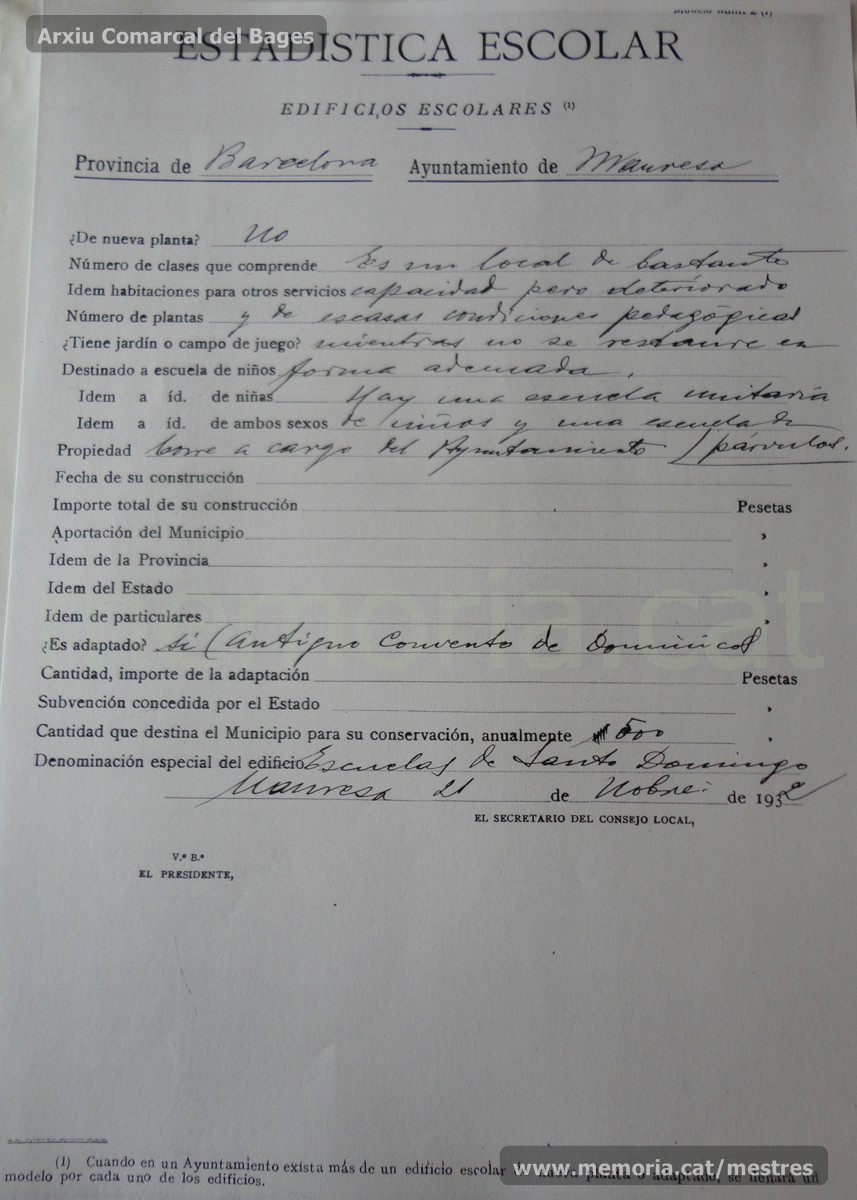 Modelo núm. 2 (1)
Arxiu Comarcal del Bages
ESTADISTICA ESCOLAR
EDIFICIOS ESCOLARES (1)
Provincia de Barcelona Ayuntamiento de Manresa
¿De nueva planta? No
Número de clases que comprende Es un local de bastante
Idem habitaciones para otros servicios capacidad pero deteriorado
Número de plantas y de escasas condiciones pedagógicas
¿Tiene jardín o campo de juego? mientras no se restaure en
Destinado a escuela de niños forma adecuada.
Idem a íd. de niñas Hay una escuela unitaria
Idem a íd. de ambos sexos de niños y una escuela de
Propiedad Corre a cargo del Ayuntamiento / párvulos.
Fecha de su construcción
Importe total de su construcción Pesetas
Aportación del Municipio »
Idem de la Provincia »
Idem del Estado »
Idem de particulares »
memoria.cat
¿Es adaptado? Sí (antiguo Convento de Dominicos
Cantidad, importe de la adaptación Pesetas
Subvención concedida por el Estado »
Cantidad que destina el Municipio para su conservación, anualmente 500 »
Denominación especial del edificio Escuelas de Santo Domingo
Manresa 21 de Nobre. de 1932
EL SECRETARIO DEL CONSEJO LOCAL,
V.º B.º
EL PRESIDENTE,
(1) Cuando en un Ayuntamiento exista más de un edificio escolar de nueva planta o adaptado, se llenará un
modelo por cada uno de los edificios.
www.memoria.cat/mestres